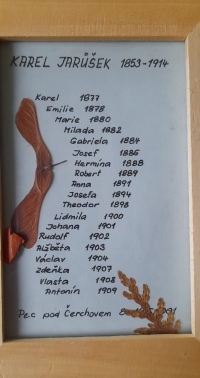 KAREL JARŮŠEK 1853-1914
Karel 1877
Emilie 1878
Marie 1880
Milada 1882
Gabriela 1884
Josef 1886
Hermína 1888
Robert 1889
Anna 1891
Josefa 1894
Theodor 1898
Lidmila 1900
Johana 1901
Rudolf 1902
Alžběta 1903
Václav 1904
Zdeňka 1907
Vlasta 1908
Antonín 1909
Pec pod Čerchovem